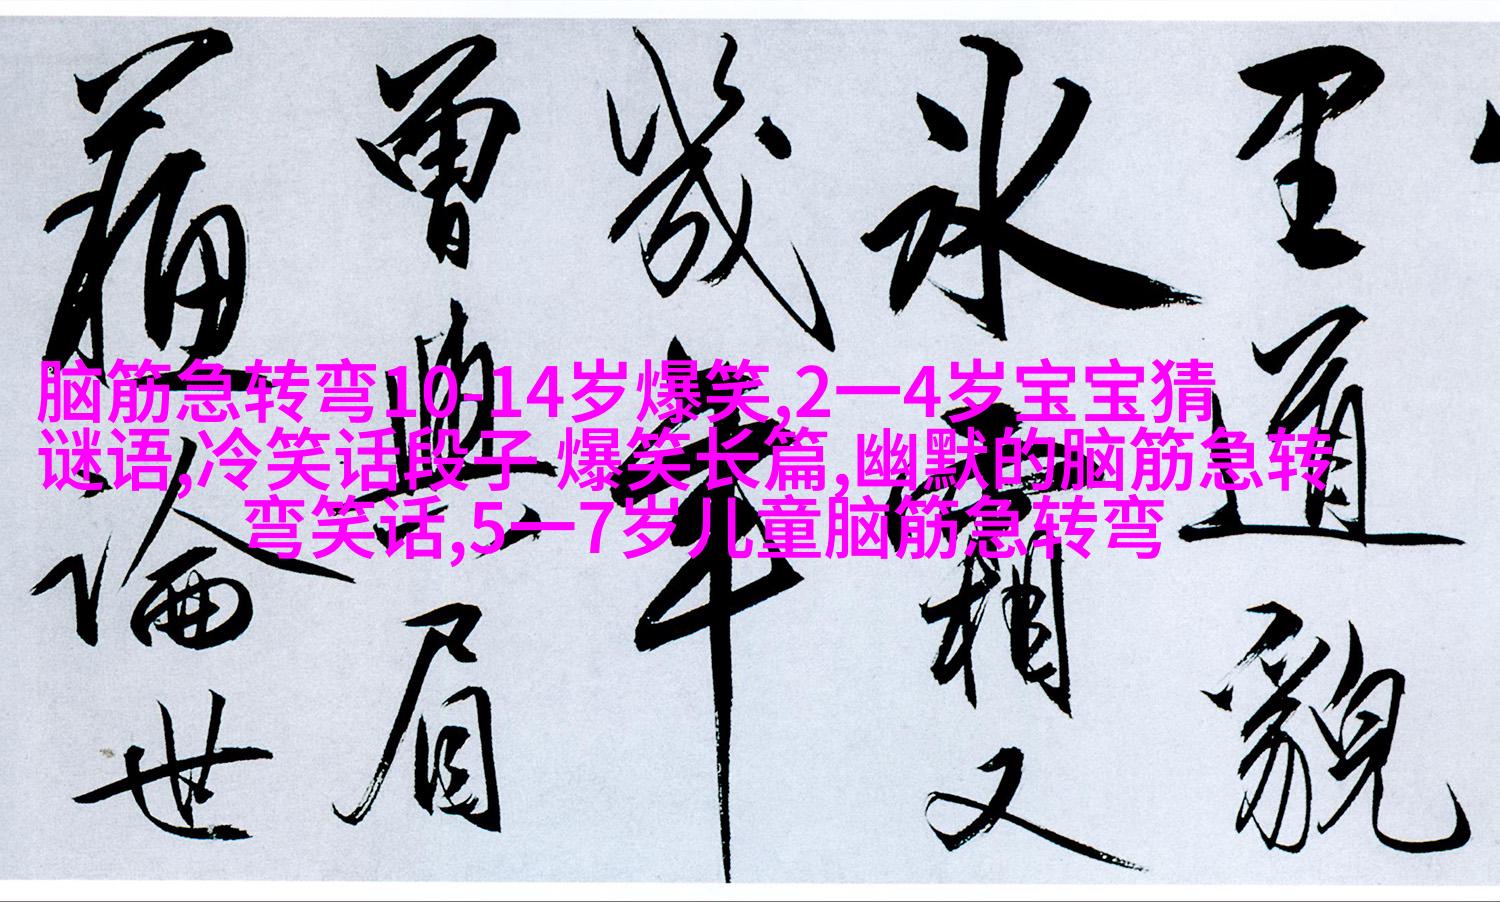 脑筋急转弯10-14岁爆笑,2一4岁宝宝猜
谜语,冷笑话段子 爆笑长篇,幽默的脑筋急转
弯笑话,5一7岁儿童脑筋急转弯
里道貌
氷霜又
幾年
曾與眉
蘓論世